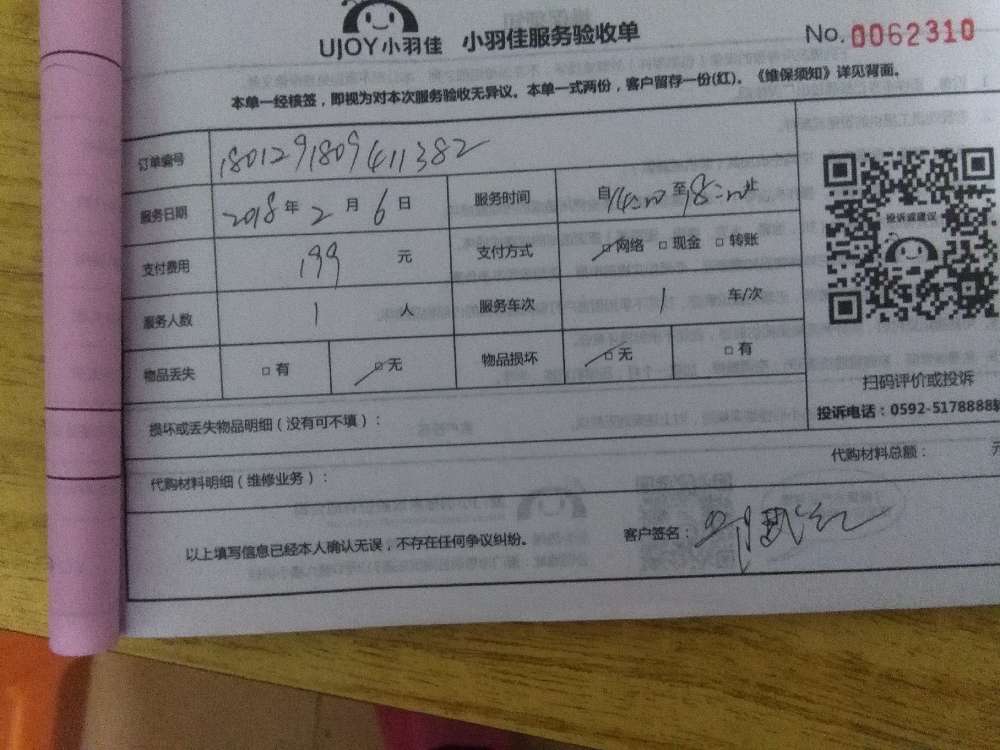 UJOY小羽佳 小羽佳服务验收单 No. 0062310
本单一经核签，即视为对本次服务验收无异议。本单一式两份，客户留存一份(红)。《维保须知》详见背面。
订单编号 180129180941​1382
服务日期 2018年2月6日 服务时间 自14:00至18:00止
支付费用 199 元 支付方式 □网络 □现金 □转账
服务人数 1 人 服务车次 1 车/次
物品丢失 □有 □无 物品损坏 □无 □有
投诉或建议
扫码评价或投诉
投诉电话：0592-5178888转
损坏或丢失物品明细（没有可不填）：
代购材料明细（维修业务）： 代购材料总额： 元
以上填写信息已经本人确认无误，不存在任何争议纠纷。 客户签名：